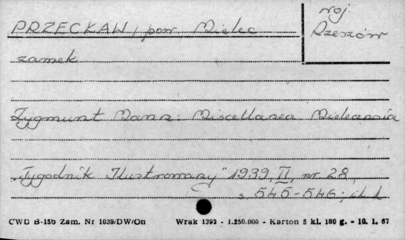 PRZECŁAW, pow. Mielec
woj
Rzeszów
zamek
Zygmunt Mann: Miscellanea Mielecensia
"Tygodnik Ilustrowany" 1939, II, nr 28,
s. 545-546; il. 1
CWD B-156 Zam. Nr 1039/DW/On Wrak 1393 - 1.250.000 - Karton 5 kl. 180 g. - 10. 1. 67